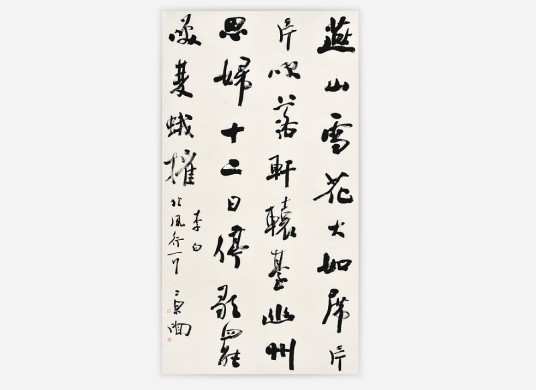 燕山雪花大如席片
片吹落軒轅臺幽州
思婦十二日停歌罷
笑雙蛾摧
李白
北風行